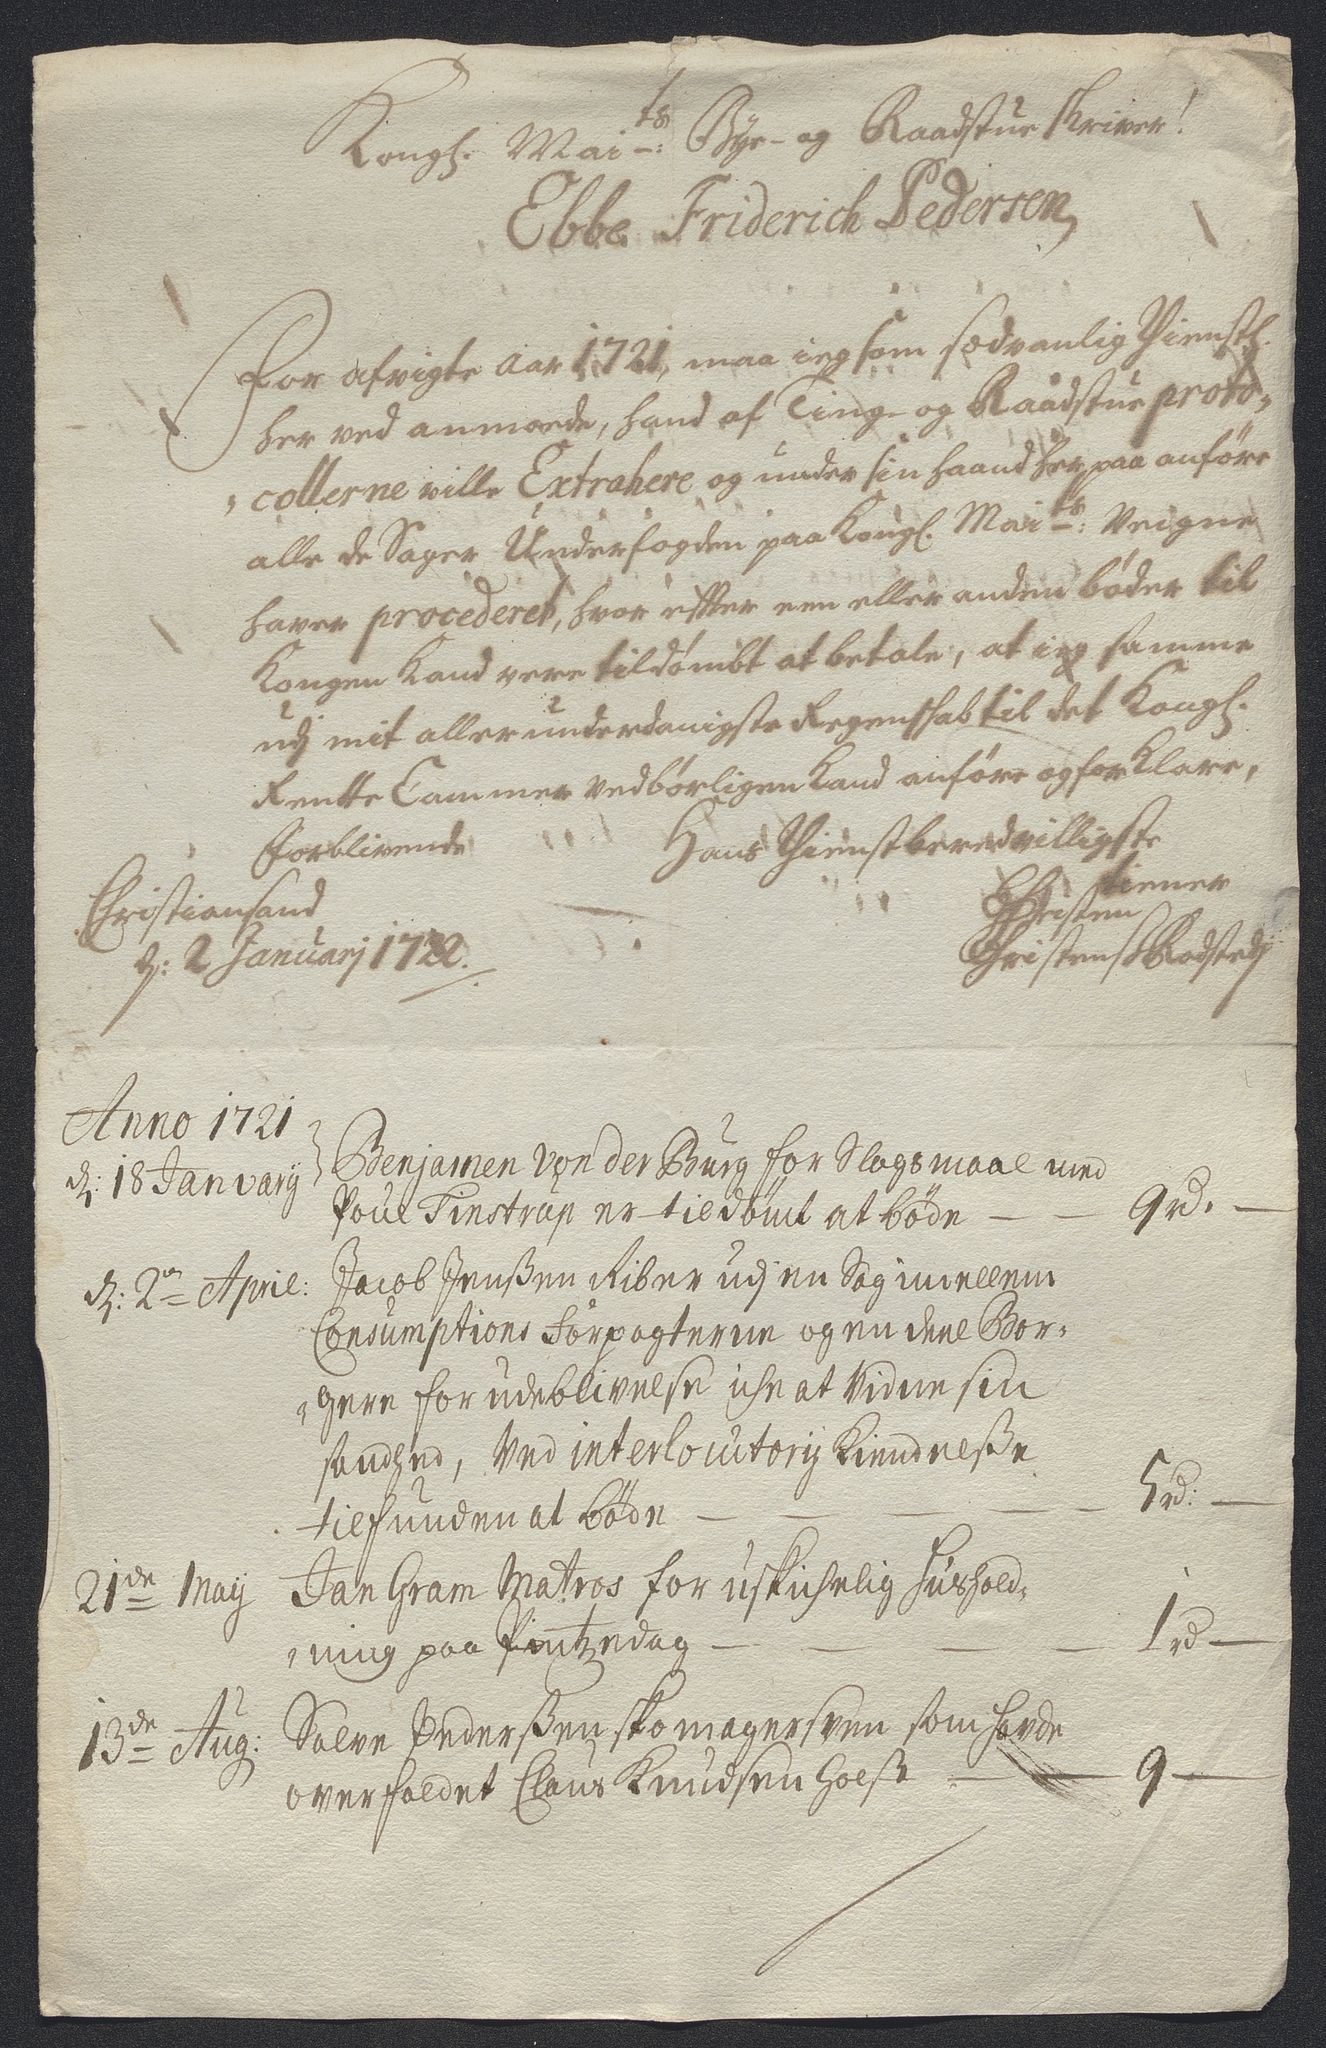 Kongl. Mai.ts Bye- og Raadstue Skriver!
Ebbe Friderich Pedersen
For afvigte Aar 1721, maa ieg som sædvanlig Thienstl.
her ved anmoede, hand af Ting- og Raadstue proto-
collerne ville Extrahere og under sin haand her paa anføre
alle de Sager Underfogden paa Kongl. Mai.ts Veigne
haver procederet, hvor effter een eller anden bøder til
Kongen Kand vere tildømbt at betale, at ieg samme
udj mit allerunderdanigste Regenskab til det Kongl.
Rentte Cammer vedbørligen Kand anføre og forklare,
Forblivende Hans Thienstberedvilligste
tiener
Christiansand Christen
d: 2 Januarj 1722. Christens Rodsted
Anno 1721
d: 18 January Benjamen von der Burg for Slagsmaal med
Poul Tinstrup er tildømt at bøde — — 9 rd. —
d: 2en April: Jacob Jenßen Riber udj en Sag imellem
Consumptions Forpagterne og en deel Bor-
gere for udeblivelse iche at vidne sin
sandhed, Ved interlocutorij Kiendelße
tilfunden at bøde — — — — 5 rd: —
21de May Jan Gram Matros for uskichelig Hushold-
ning paa Pintzedag — — — — 1 rd —
13de Aug: Salve Pederßen skomagersven som havde
overfaldet Claus Knudsen Holst — — 9 —